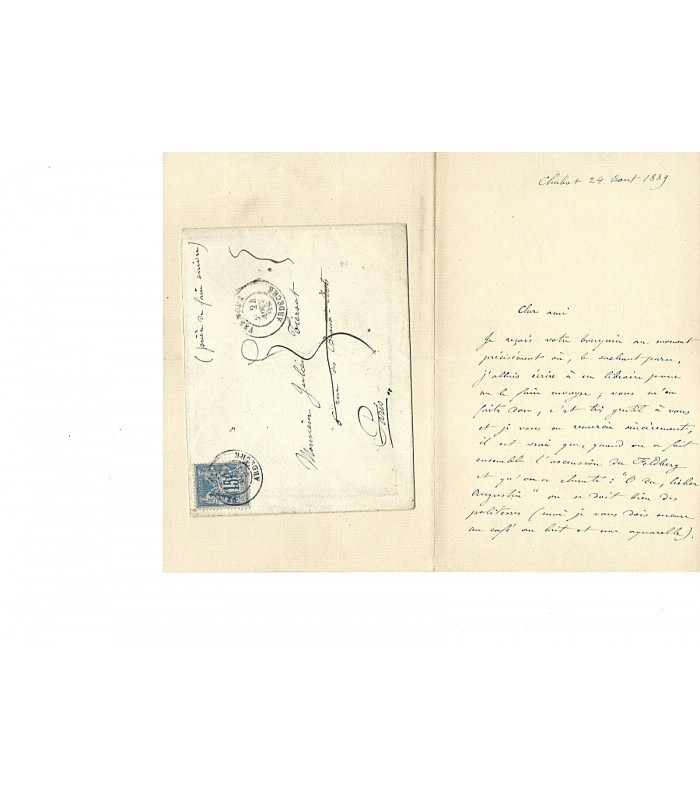 (prière de faire suivre)
Monsieur Julien Tiersot
Paris
ARDÈCHE
ARDÈCHE
15
Chabot 24 Aout 1889
Cher ami
Je reçois votre bouquin au moment
précisément où, le sachant paru,
j'allais écrire à un libraire pour
me le faire envoyer ; vous m'en
faites don, c'est très gentil à vous
et je vous en remercie sincèrement,
il est vrai que, quand on a fait
ensemble l'ascension du Feldberg
et qu'on a chanté : "O du, lieber
Augustin" on se doit bien des
politesses (moi je vous dois encore
un café au lait et une aquarelle).